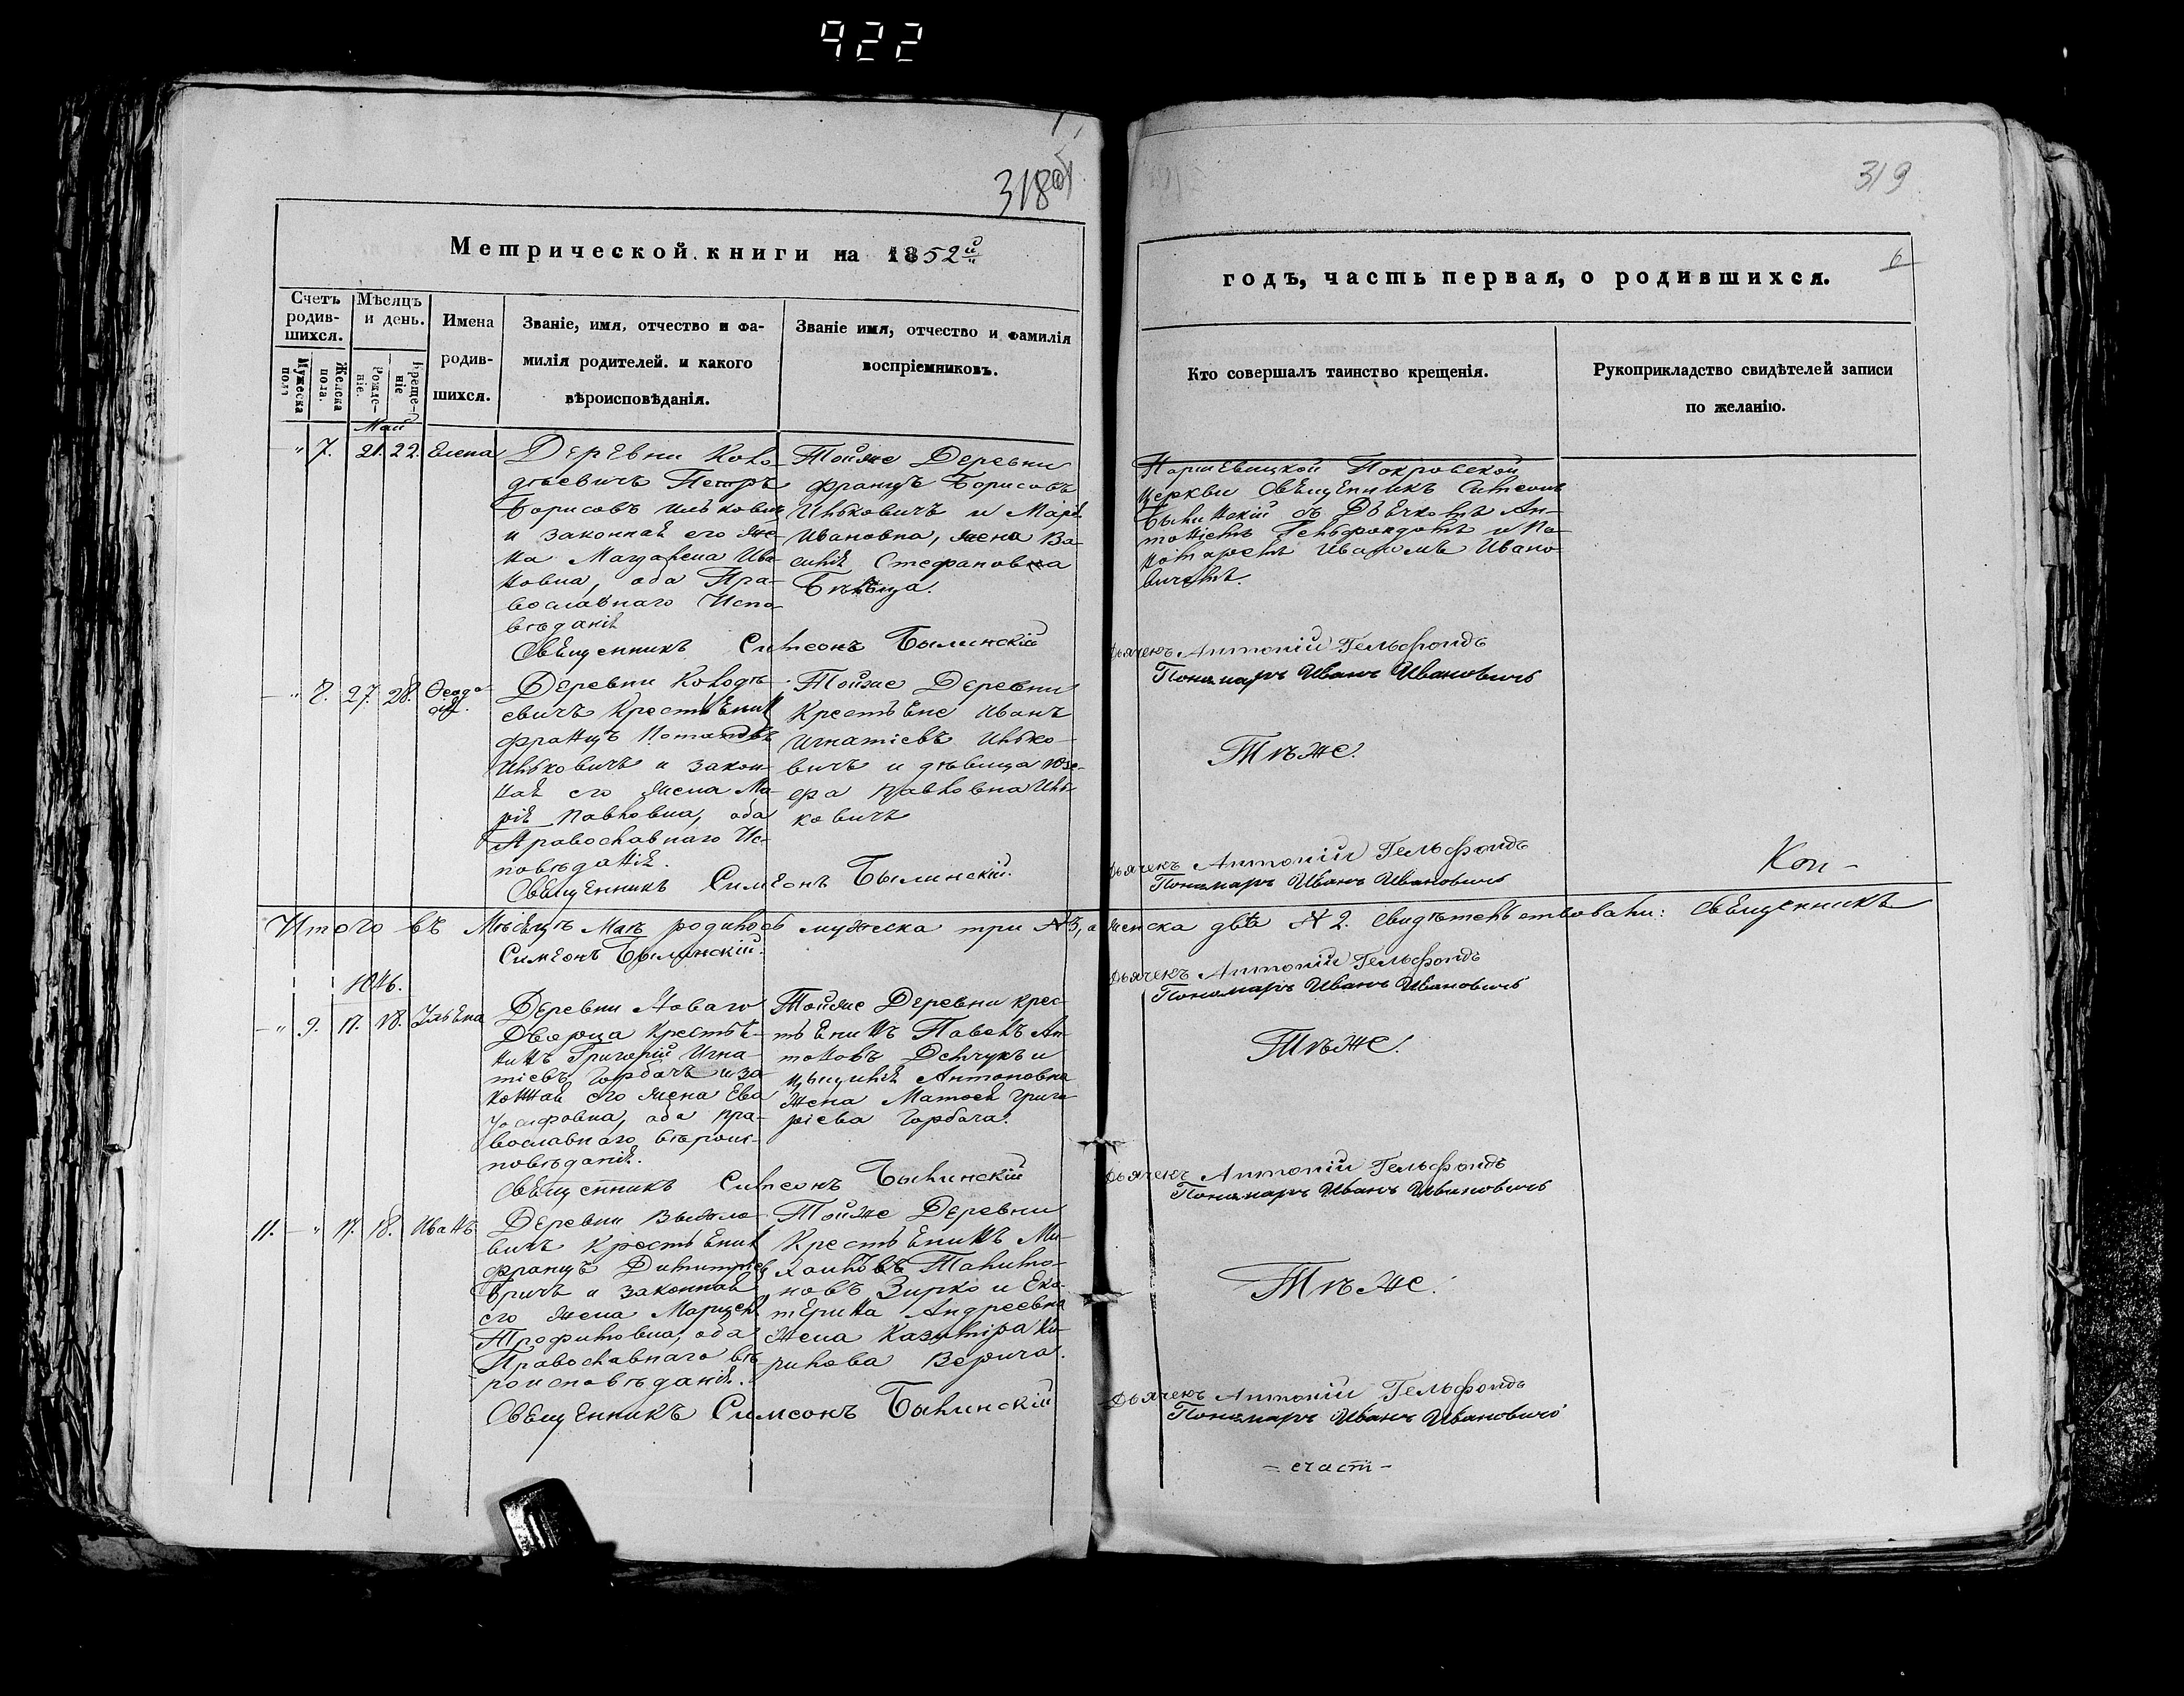 922
318 об
319
6
Метрической книги на 1852й
годъ, часть первая, о родившихся.
Счетъ родив-шихся.
Мужеска пола
Женска пола.
Мѣсяцъ и день.
Рожде-ніе.
Креще-ніе
Имена
родив-
шихся.
Званіе, имя, отчество и фа-
милія родителей. и какого
вѣроисповѣданія.
Званіе имя, отчество и фамилія
воспріемниковъ.
Кто совершалъ таинство крещенія.
Рукоприкладство свидѣтелей записи
по желанію.
Май
" 7. 21. 22. Елена
Деревни Коло-
дѣевичъ Петръ
Борисовъ Инькович
и законная его же-
на Магдалена Ива-
новна, оба Пра-
вославнаго Испо-
вѣданія
Тойже Деревни
Францъ Борисовъ
Иньковичъ и Марія
Ивановна, жена Ва-
силія Стефанов
Поршевицкой Покровской
церкви Священникъ Симеонъ
Былинскій съ Дьячкомъ Ан-
тоніемъ Гельфондомъ и По-
номаремъ Иваномъ Ивано-
вичемъ.
Священникъ Симеонъ Былинскій
Дьячекъ Антоній Гельфондъ
Пономаръ Иванъ Ивановичъ
" 8. 27. 28.
Деревни Колодѣ-
евичъ Крестьянин
Францъ
Иньковичъ и закон-
ная его жена Ма-
рія Павловна, оба
Православнаго Ис-
повѣданія.
Тойже Деревни
Крестьяне Иванъ
Игнатіевъ Инько-
вичъ и дѣвица Юзе-
фа Павловна Инь-
ковичъ
Тѣже.
Священникъ Симеонъ Былинскій.
Дьячекъ Антоній Гельфондъ
Пономаръ Иванъ Ивановичъ
Коп-
Итого въ Мѣсяцѣ Маѣ родилось мужеска три N3, а женска двѣ N 2. Свидѣтельствовали: Священникъ
Симеонъ Былинскій.
Дьячекъ Антоній Гельфондъ
Пономаръ Иванъ Ивановичъ
Юнь.
" 9. 17. 18. Ульяна
Деревни Новаго
Дворца Крестья-
нинъ Григорій Игна-
тіевъ Горбачъ и за-
конная его жена Ева
Іосифовна, оба пра-
вославнаго вѣроис-
повѣданія.
Тойже Деревни крес-
тьянинъ Павелъ Ан-
тоновъ Демчукъ и
Цицилія Антоновна
жена Матвея Григо-
ріева Горбача.
Тѣже.
Священникъ Симеонъ Былинскій
Дьячекъ Антоній Гельфондъ
Пономаръ Иванъ Ивановичъ
11. " 17. 18. Иванъ
Деревни
вичъ Крестьянин
Францъ Димитріев
и законная
его жена
Трофимовна, оба
Православнаго вѣ-
роисповѣданія.
Тойже Деревни
Крестьянинъ Ми-
новъ Зирко и Ека-
терина Андреевна
жена Казиміра Ки-
рилова Верича.
Тѣже.
Священникъ Симеонъ Былинскій
Дьячекъ Антоній Гельфондъ
Пономаръ Иванъ Ивановичъ